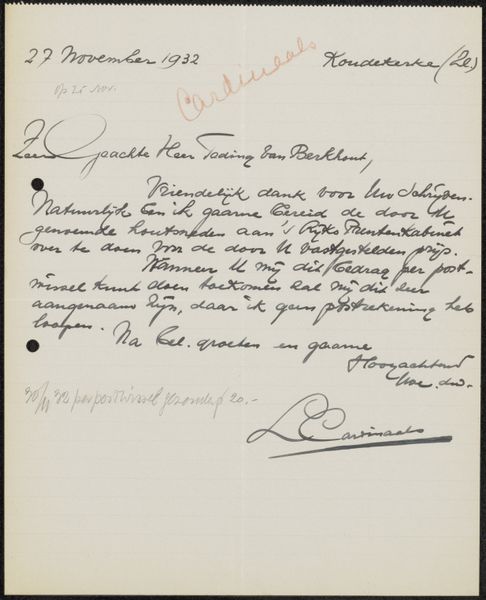 27 November 1932
Koudekerke (Zl.)
op 25 nov.
Cardineals
Zeer Geachte Heer Teding van Berkhout,
Vriendelijk dank voor Uw Schrijven.
Natuurlijk ben ik gaarne bereid de door U
genoemde houtsneden aan 's Rijks Prentenkabinet
over te doen voor de door U vastgestelden prijs.
Wanneer U mij dit bedrag per post-
wissel kunt doen toekomen zal mij dit zeer
aangenaam zijn, daar ik geen postrekening heb
loopen.
Na bel. groeten en gaarne
Hoogachtend
Uw. dw.
30/11 32 per postwissel gezonden ƒ 20.-
L Cardinaals